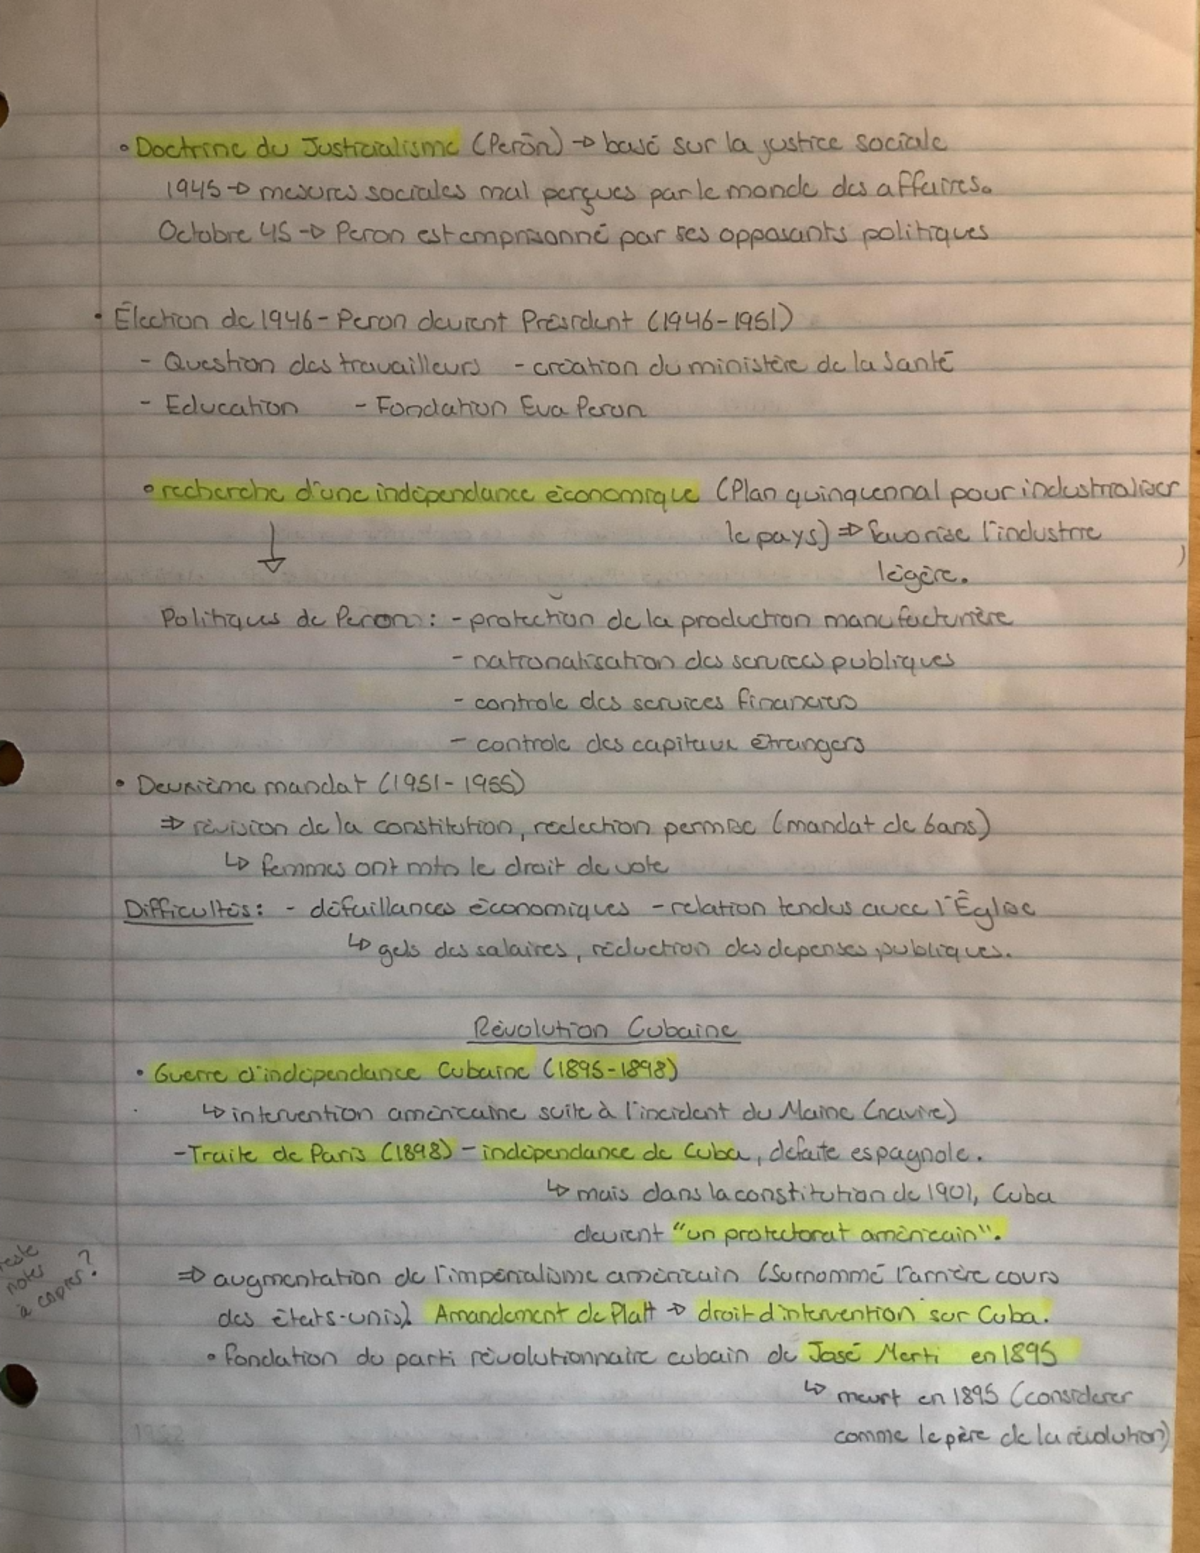 • Doctrine du Justicialisme (Perōn) → basé sur la justice sociale
1945 → mesures sociales mal perçues par le monde des affaires.
Octobre 45 → Peron est emprisonné par ses opposants politiques
• Élection de 1946 - Peron devient Président (1946-1951)
- Question des travailleurs - création du ministère de la Santé
- Education - Fondation Eva Peron
• recherche d'une indépendance économique (Plan quinquennal pour industrialiser
le pays) ⇒ favorise l'industrie
légère.
Politiques de Peron : - protection de la production manufacturière
- nationalisation des services publiques
- controle des services financiers
- controle des capitaux étrangers
• Deuxième mandat (1951-1955)
⇒ révision de la constitution, reelection permise (mandat de 6ans)
↳ femmes ont mtn le droit de vote
Difficultés : - défaillances économiques - relation tendus avec l'Église
↳ gels des salaires, réduction des depenses publiques.
Révolution Cubaine
• Guerre d'indépendance Cubaine (1895-1898)
↳ intervention américaine suite à l'incident du Maine (navire)
- Traite de Paris (1898) - indépendance de Cuba, défaite espagnole.
↳ mais dans la constitution de 1901, Cuba
devient "un protectorat américain".
⇒ augmentation de l'impérialisme américain (Surnommé l'arrière cours
des états-unis). Amandement de Platt → droit d'intervention sur Cuba.
• fondation du parti révolutionnaire cubain de José Merti en 1895
↳ meurt en 1895 (considerer
comme le père de la révolution)
reste
notes
à copier?